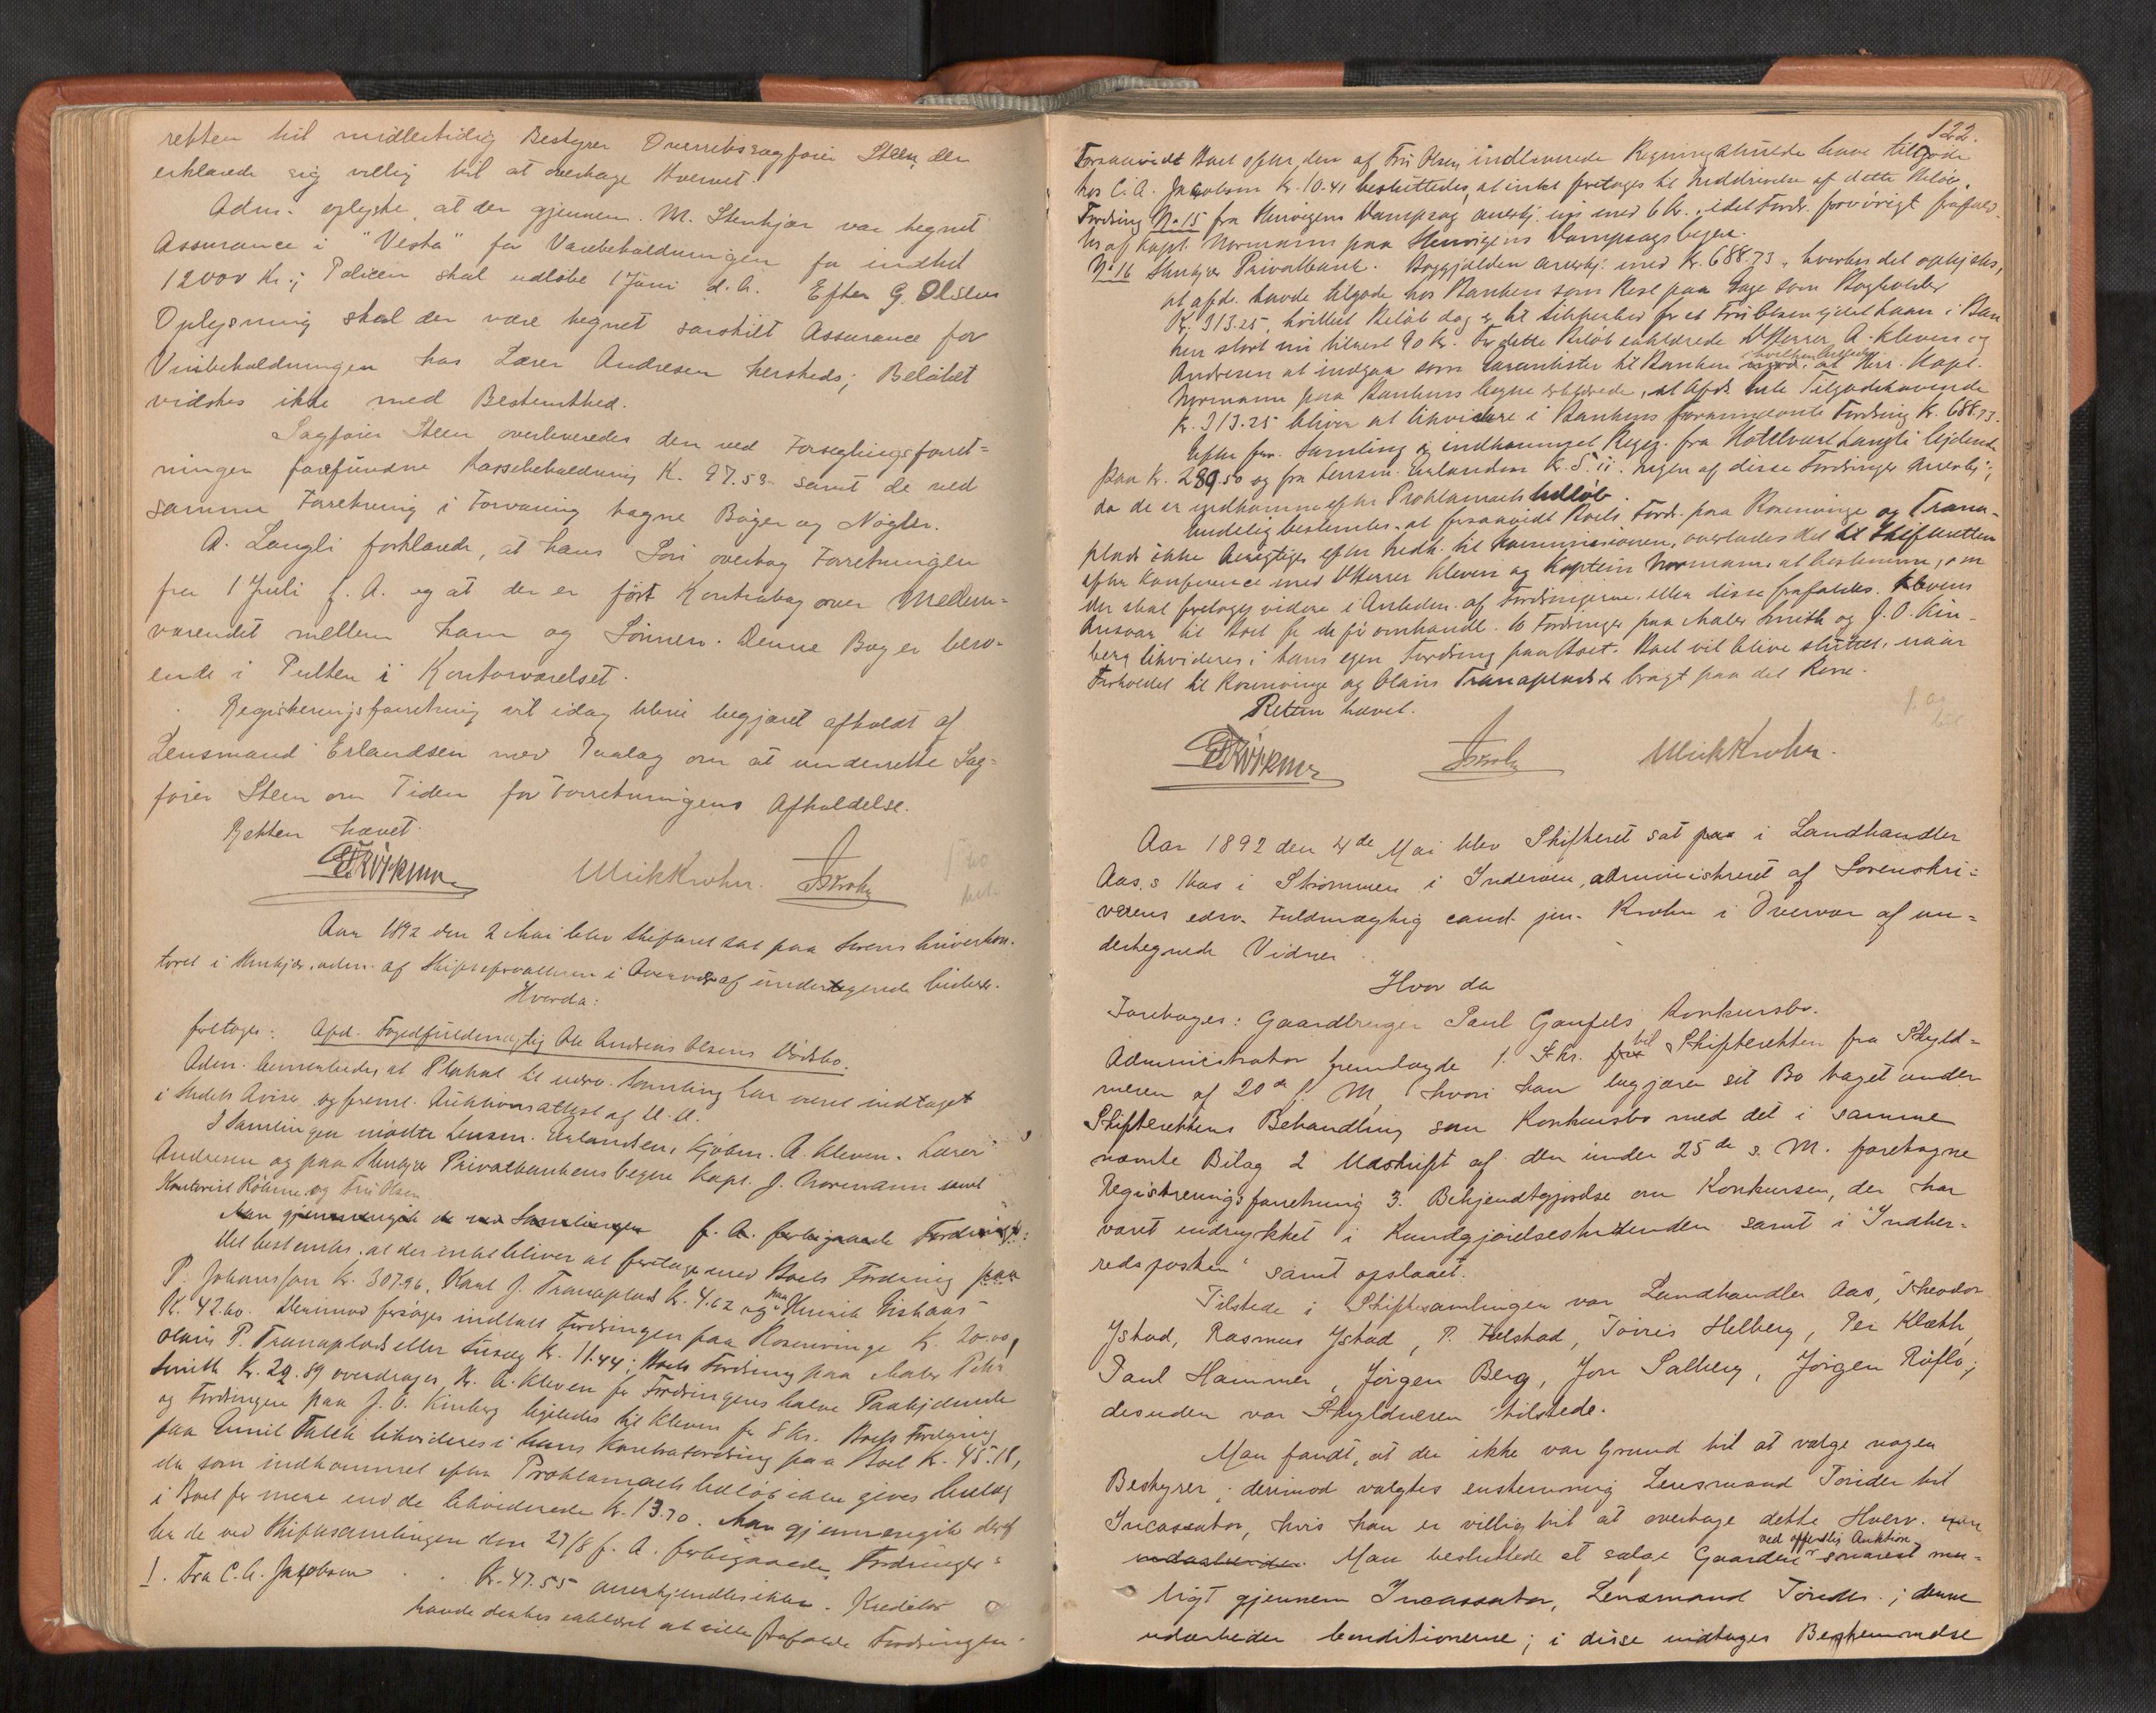 retten til midlertidig Bestyrer Overretssagfører Steen, der
erklærede sig villig til at overtage Hvervet.
Adm. oplyste, at der gjennem M. Stenkjær var tegnet
Assurance i "Vesta" for Varebeholdningen for indtil
12000 Kr.; Policen skal udløbe 1 Juni d. A. Efter G. Olsens
Oplysning skal der være tegnet særskilt Assurance for
Vinbeholdningen hos Lærer Andresen hersteds; Beløbet
vidstes ikke med Bestemthed.
Sagfører Steen overleveredes den ved Forseglingsforret=
ningen forefundne Kassebeholdning K. 97.53 samt de ved
samme Forretning i Forvaring tagne Bøger og Nøgler.
A. Langli forklarede, at hans Søn overtog Forretningen
fra 1 Juli f. A. og at der er ført Kontrabog over Mellem=
værendet mellem ham og Sønnen. Denne Bog er bero=
ende i Pulten i Kontorværelset.
Registreringsforretning vil idag blive begjæret afholdt af
Lensmand Erlandsen med Paalæg om at underrette Sag=
fører Steen om Tiden for Forretningens Afholdelse.
Retten hævet.
Ulrik Krohn.
Aar 1892 den 2 Mai blev Skifteret sat paa Sorenskriverkon-
toret i Stenkjær, adm. af Skifteforvalteren i Overvær af undertegnede Vidner.
Hvorda:
foretoges: Afd. Fogedfuldmægtig Ole Andreas Olsens Dødsbo.
Adm. bemærkedes, at Plakat til nærv. Samling har været indtaget
i Stedets Aviser og freml. Auktionsattest af
I Samlingen mødte Lensm. Erlandsen, Kjøbm. A. Kleven, Lærer
Andresen og paa Stenkjær Privatbankens Vegne Kapt. J. Normann samt
Kontorist Røhme og Fru Olsen.
Man gjennemgik de ved Samlingen f. A. forbigaaede Fordringer:
Det bestemtes, at der intet bliver at foretage med Boets Fordring paa
P. Johansson Kr. 307.96, Karl J. Tranaplads K. 4.62 og paa Henrik
K. 42.60. Derimod forsøges inddrevet Fordringen paa Rosenvinge K. 20.00,
Olaus P. Tranaplads eller K. 11.44; Boets Fordring paa Maler Peter
Smith Kr. 29.89 overdrages Kr. A. Kleven for Fordringens halve Paalydende
og Fordringen paa J. O. Kinberg ligeledes til Kleven for 8 Kr. Boets Fordring
paa Emil Falch likvideres i hans Kontrafordring paa Boet K. 45.18,
da som indkommet efter Proklamaets Udløb ikke gives Udlæg
i Boet for mere end de likviderede Kr. 13.70. Man gjennemgik derefter
de ved Skiftesamlingen den 27/8 f. A. forbigaaede Fordringer:
1. Fra C. A. Jacobsen . . K. 47.55 anerkjendtes ikke. Kreditor
havde desuden erklæret at ville frafalde Fordringen.
122.
Forsaavidt Boet efter den af Fru Olsen indleverede Regning skulde have tilgode
hos C. A. Jacobsen Kr. 10.41 besluttedes, at intet foretages til Inddrivelse af dette Beløb.
Fordring No 15 fra Stenvigens Dampsag anerkj. med 6 Kr., idet Fordr. forøvrigt frafald-
tes af Kapt. Normann paa Stenvigens Dampsags Vegne.
No 16 Stenkjær Privatbank. Boggjælden anerkj. med Kr. 688.73, hvorhos det oplystes,
at afd. havde tilgode hos Banken som Rest paa Gage som Bogholder
Kr. 313.25, hvilket Beløb dog er til Sikkerhed for et Fru Olsen ydet Laan i Ban
ken stort nu tilrest 90 Kr. For dette Beløb erklærede DHerrer A. Kleven og
Andresen at indgaa som Garantister til Banken i hvilken Anledn. Herr Kapt.
Normann paa Bankens Vegne erklærede, at Afdødes hele Tilgodehavende
K. 313.25 bliver at likvidere i Bankens foranmeldte Fordring K. 688.73.
Efter forr. Samling er indkommet Regng. fra Hotelvært Langli lydende
paa K. 289.50 og fra Lensm. Erlandsen K. 5.11. Ingen af disse Fordringer anerkj.;
da de er indkomne efter Proklamaets Udløb.
Endelig bestemtes, at forsaavidt Boets Fordr. paa Rosenvinge og Trana-
plads ikke berigtiges efter Indk. til Kommissionen, overlades det til Skifteretten
efter Konference med DHerrer Kleven og Kaptein Normann at bestemme, om
der skal foretages videre i Anledn. af Fordringerne, eller disse frafaldes. Klevens
Ansvar til Boet for de før omhandl. to Fordringer paa Maler Smith og J. O. Kin-
berg likvideres i hans egen Fordring paa Boet. Boet vil blive sluttet, naar
Forholdet til Rosenvinge og Olaus Tranaplads er bragt paa det Rene.
Retten hævet.
Ulrik Krohn.
Aar 1892 den 4de Mai blev Skifteret sat paa i Landhandler
Aas's Hus i Strømmen i Inderøen, administreret af Sorenskri=
verens edsv. Fuldmægtig cand. jur. Krohn i Overvær af un=
dertegnede Vidner.
Hvor da
Foretoges: Gaardbruger Paul Gaufels Konkursbo.
Administrator fremlagde 1. Skr. fra til Skifteretten fra Skyld=
neren af 20de f. M., hvori han begjærer sit Bo taget under
Skifterettens Behandling som Konkursbo med det i samme
nævnte Bilag 2 Udskrift af den under 25de s. M. foretagne
Registreringsforretning 3. Bekjendtgjørelse om Konkursen, der har
været indrykket i Kundgjørelsestidenden samt i "Indher=
redsposten" samt opslaaet.
Tilstede i Skiftesamlingen var Landhandler Aas, Theodor
Ystad, Rasmus Ystad, P. Hulstad, Tørris Helberg, Per Klæth,
Paul Hammer, Jørgen Berg, Jon Salberg, Jørgen Røflo;
desuden var Skyldneren tilstede.
Man fandt, at der ikke var Grund til at vælge nogen
Bestyrer; derimod valgtes enstemmig Lensmand Tønder til
Incassator, hvis han er villig til at overtage dette Hverv.
Man besluttede at sælge Gaarden ved offentlig Auktion snarest mu=
ligt gjennem Incassator, Lensmand Tønder; denne
udarbeider Conditionerne; i disse indtages Bestemmelse